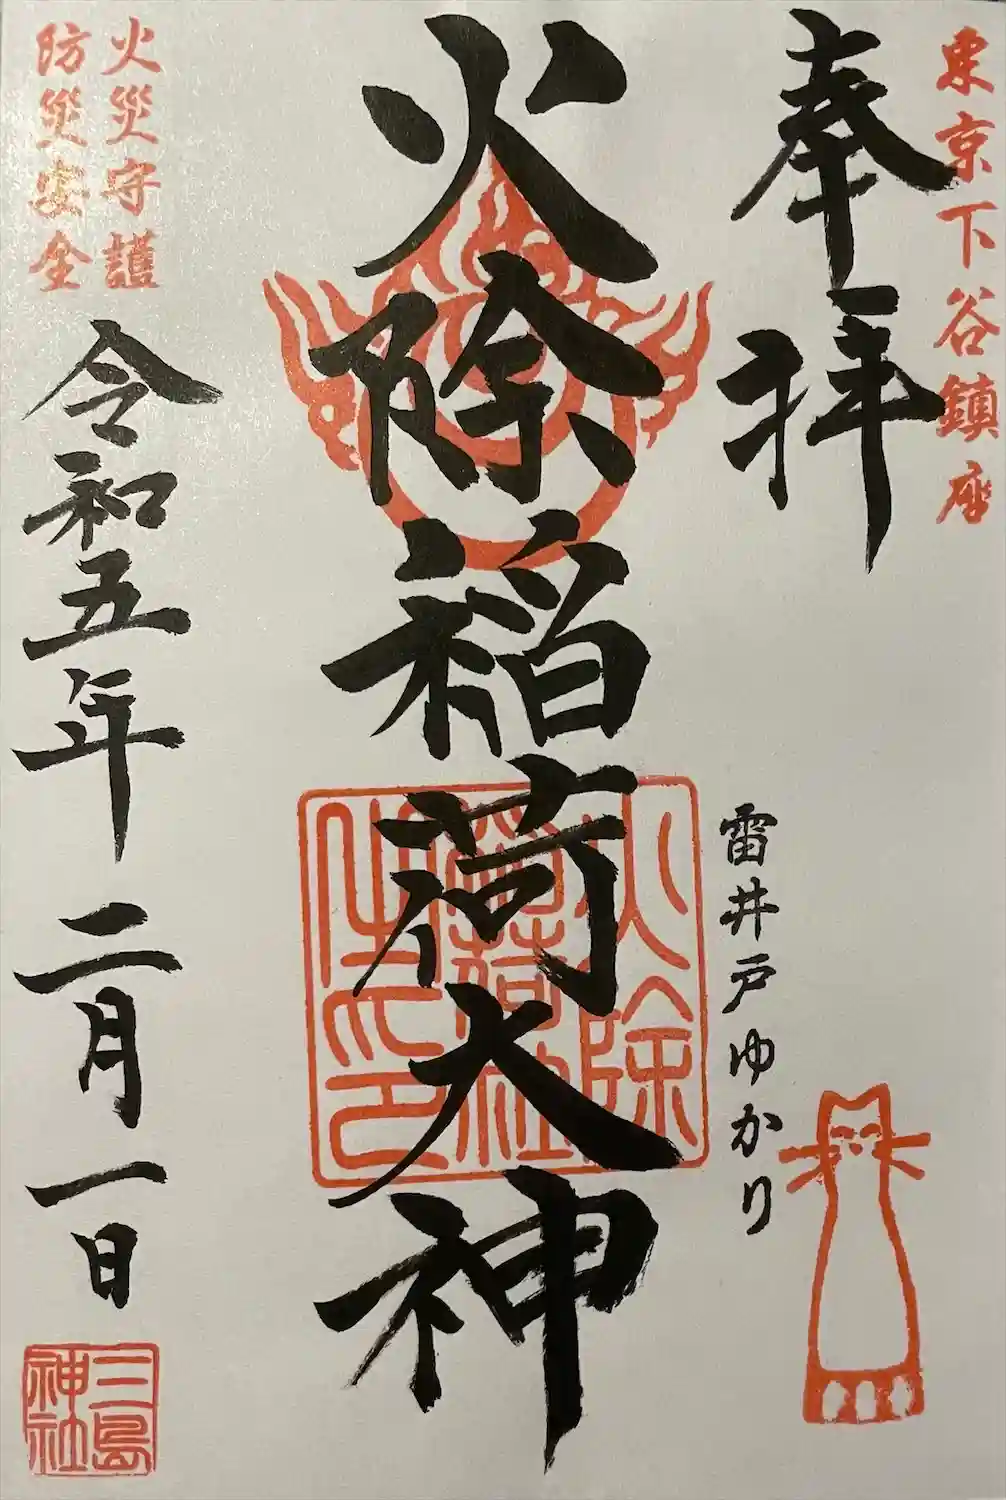 東京下谷鎮座
奉拝
雷井戸ゆかり
火除稲荷大神
火除
稲荷社
火災守護
防災安全
令和五年二月一日
三島
神社